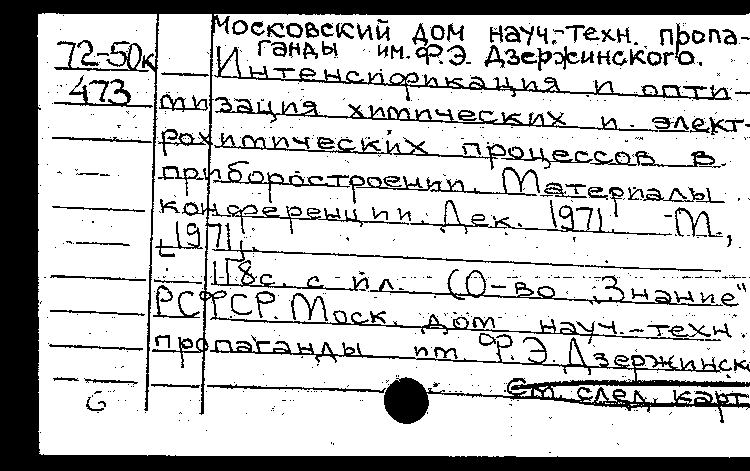 Московский дом науч.-техн. пропа-
ганды им. Ф.Э. Дзержинского.
72-50к
473
Интенсификация и опти-
мизация химических и элект-
рохимических процессов в
приборостроении. Материалы
конференции. Дек. 1971. М.,
[1971].
118с. с ил. (О-во „Знание"
РСФСР. Моск. дом науч.-техн.
пропаганды им. Ф.Э. Дзержинск
См. след. карт
6